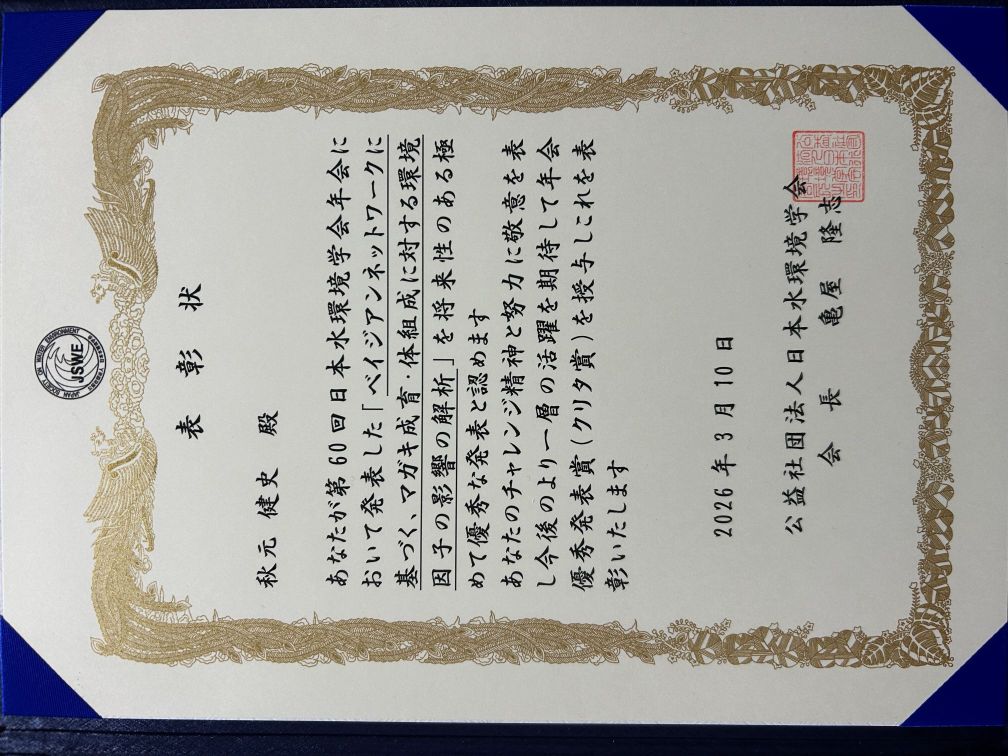 JAPAN SOCIETY ON WATER ENVIRONMENT
JSWE
表彰状
秋元 健史 殿
あなたが第60回日本水環境学会年会に
おいて発表した「ベイジアンネットワークに
基づく、マガキ成育・体組成に対する環境
因子の影響の解析」を将来性のある極
めて優秀な発表と認めます
あなたのチャレンジ精神と努力に敬意を表
し今後のより一層の活躍を期待して年会
優秀発表賞(クリタ賞)を授与しこれを表
彰いたします
2026年3月10日
公益社団法人日本水環境学会
会長 亀屋 隆志